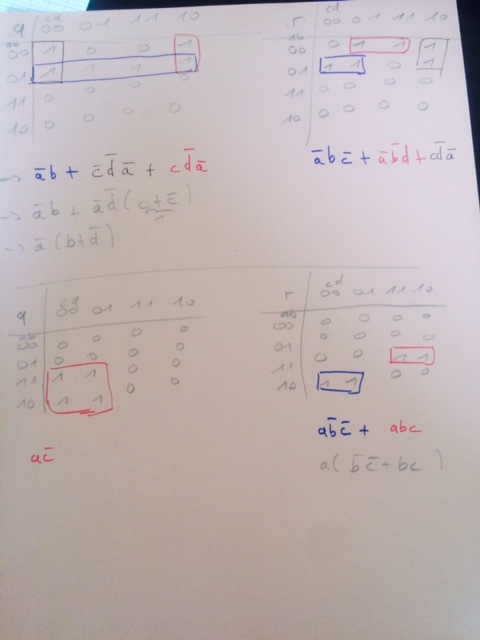 q cd 00 01 11 10
ab 00 1 0 0 1
01 1 1 1 1
11 0 0 0 0
10 0 0 0 0
→ a̅b + c̅d̅a̅ + cd̅a̅
→ a̅b + a̅d̅(c+c̅)
1
→ a̅(b+d̅)
r cd 00 01 11 10
ab 00 0 1 1 1
01 1 1 0 1
11 0 0 0 0
10 0 0 0 0
a̅bc̅ + a̅b̅d + cd̅a̅
q cd 00 01 11 10
ab 00 0 0 0 0
01 0 0 0 0
11 1 1 0 0
10 1 1 0 0
ac̅
r cd 00 01 11 10
ab 00 0 0 0 0
01 0 0 0 0
11 0 0 1 1
10 1 1 0 0
ab̅c̅ + abc
a(b̅c̅+bc)